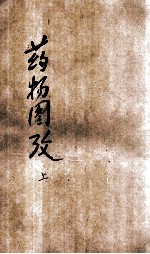 药物图考
上